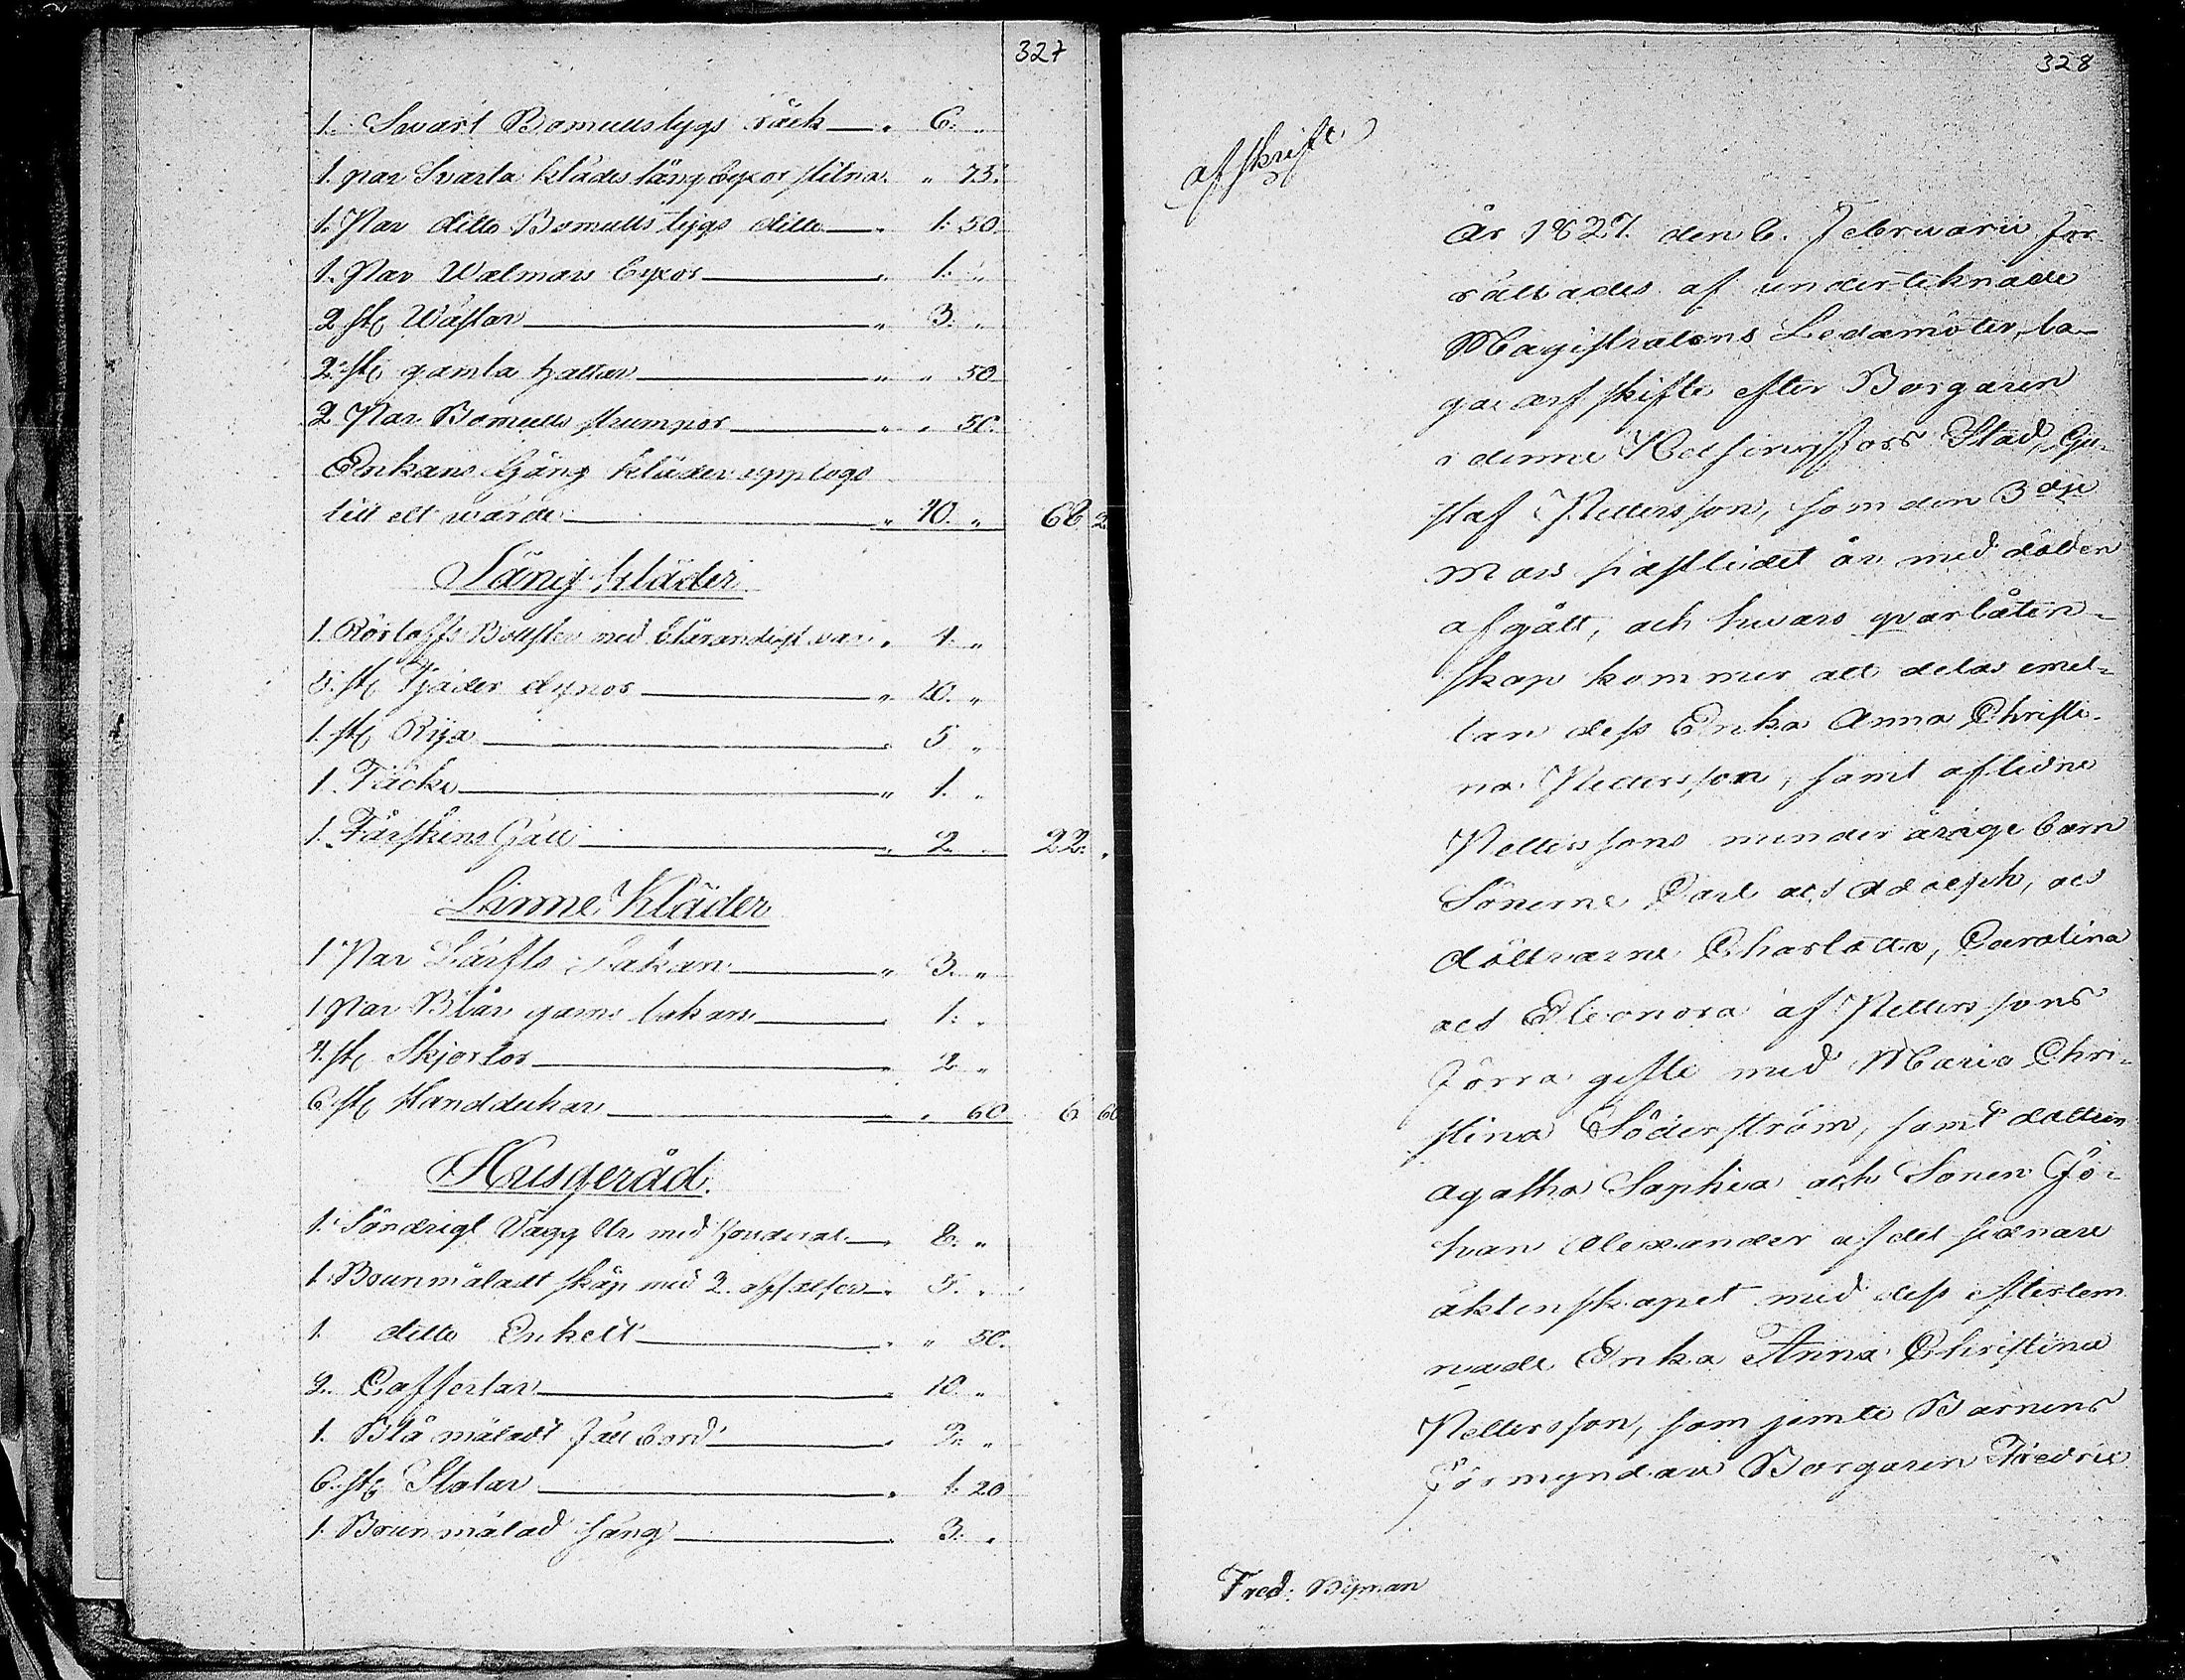 327
1. Svart Bomullstygs råck — " 6. "
1. par Svarta klädes långbyxor slitna. " 75.
1. Par ditto Bomulls tygs ditto — " 1. 50.
1. Par Walmars byxor — " 1. "
2 st Wästar — " 3. "
2 st gamla hattar — " " 50
2 Par Bomulls strumpor — " " 50.
Enkans Gång kläder upptogs
till ett wärde — " 40. " 68 2
Säng kläder
1. Bolster med var " 4. "
5. st Fjäder dynor — " 10. "
1. st Rya — " 5 "
1. Täcke — " 1. "
1. Fårskins Fäll — " 2 " 22. "
Linne Kläder
1 Par Lärfts Lakan — " 3. "
1 Par Blår garns lakan — " 1. "
4. st Skjortor — " 2 "
6 st Handdukar — " " 60 6 60
Husgeråd.
1. Söndrigt Vägg Ur med fouderal — " 8. "
1. Brunmåladt skåp med 2. afsatser — " 5. "
1. ditto Enkelt — " " 50.
2. Coffertar — " 10. "
1. Blå måladt fäll bord — " 2. "
6. st Stolar — " 1. 20
1. Brunmålad säng — " 3. "
328
afskrift
År 1827. den 6. Februarii för
rättades af underteknade
Magistratens Ledamöter, la-
ga arfskifte efter Borgaren
i denne Helsingfors Stad, Gu-
staf Pettersson, som den 3dje
Mars sistledet år med döden
afgått, och hwars qvarlåten-
skap kommer att delas emel-
lan dess Enka Anna Christi-
na Pettersson, samt aflidne
Petterssons minderårige barn
Sönerne Carl och Adolph, och
döttrarne Charlotta, Carolina
och Eleonora af Petterssons
förra gifte med Maria Chri-
stina Söderström, samt dottren
Agatha Sophia och Sonen Jo-
han Alexander af det sednare
äktenskapet med dess efterlem
nade Enka Anna Christina
Pettersson, som jemte Barnens
Förmyndare Borgaren Fredric
Fred: Byman